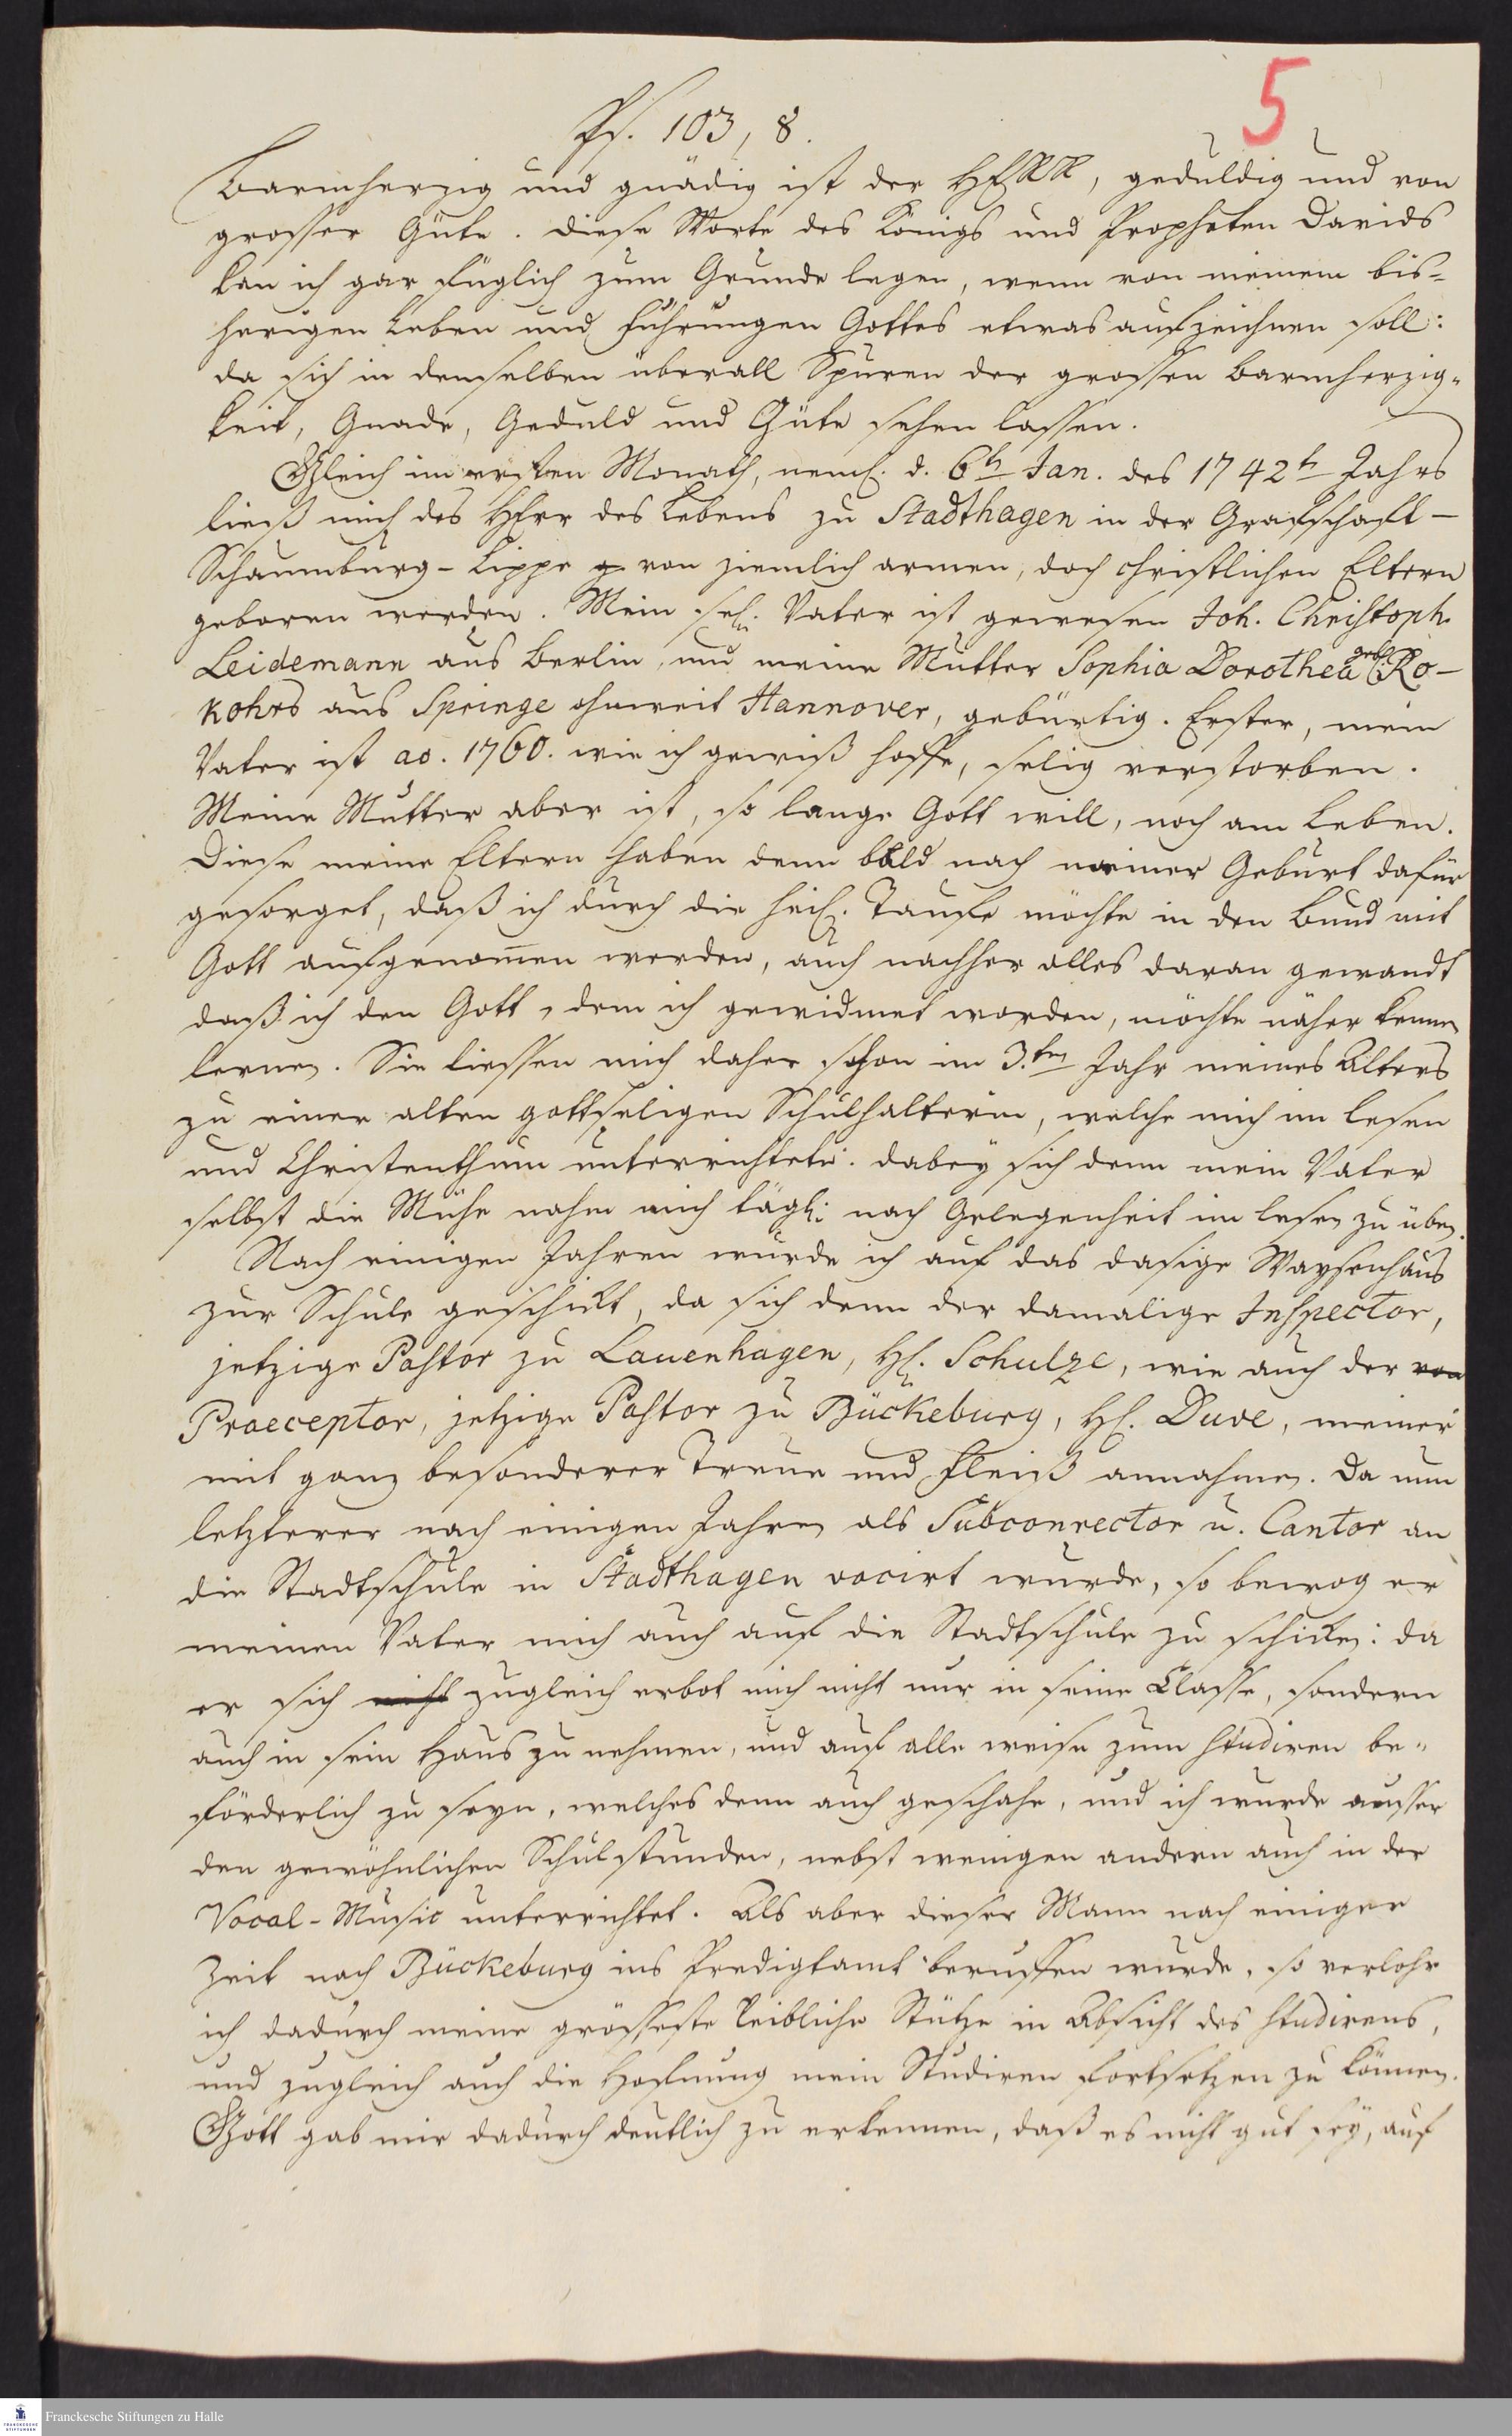 5
Ps. 103, 8.
Barmherzig und gnädig ist der HERR, geduldig und von
grosser Güte. Diese Worte des Königs und Propheten Davids
kan ich gar füglich zum Grunde legen, wenn von meinem bis-
herigen Leben und Führungen Gottes etwas aufzeichnen soll:
da sich in demselben überall Spuren der grossen Barmherzig-
keit, Gnade, Geduld und Güte sehen lassen.
Gleich im ersten Monath, neml. d. 6t Jan. des 1742t Jahrs
ließ mich des HErr des Lebens zu Stadthagen in der Grafschaft-
Schaumburg-Lippe g von ziemlich armen, doch christlichen Eltern
geboren werden. Mein sel. Vater ist gewesen Joh. Christoph
Leidemann aus Berlin, und meine Mutter Sophia Dorothea geb. Ro-
kohrs aus Springe ohnweit Hannover, gebürtig. Erster, mein
Vater ist ao. 1760. wie ich gewiß hoffe, selig verstorben.
Meine Mutter aber ist, so lange Gott will, noch am Leben.
Diese meine Eltern haben denn bald nach meiner Geburt dafür
gesorget, daß ich durch die heil. Taufe möchte in den Bund mit
Gott aufgenom̄en werden, auch nachher alles daran gewandt
daß ich den Gott, dem ich gewidmet worden, möchte näher kennen
lernen. Sie liessen mich daher schon im 3.ten Jahr meines Alters
zu einer alten gottseligen Schulhalterin, welche mich im lesen
und Christenthum unterrichtete: dabey sich denn mein Vater
selbst die Mühe nahm mich tägl: nach Gelegenheit im lesen zu üben.
Nach einigen Jahren wurde ich auf das dasige Waysenhaus
zur Schule geschickt, da sich denn der damalige Inspector,
jetzige Pastor zu Lauenhagen, H. Schulze, wie auch der von
Praeceptor, jetzige Pastor zu Bückeburg, H. Duve, meiner
mit ganz besonderer Treue und Fleiß annahmen. Da nun
letzterer nach einigen Jahren als Subconrector u. Cantor an
die Stadtschule in Stadthagen vocirt wurde, so bewog er
meinen Vater mich auch auf die Stadtschule zu schicken: da
er sich nicht zugleich erbot mich nicht nur in seine Classe, sondern
auch in sein Haus zu nehmen, und auf alle weise zum studiren be-
förderlich zu seyn, welches denn auch geschahe, und ich wurde ausser
den gewöhnlichen Schulstunden, nebst wenigen andern auch in der
Vocal-Music unterrichtet. Als aber dieser Mann nach einiger
Zeit nach Bückeburg ins Predigtamt beruffen wurde, so verlohr
ich dadurch meine grösseste leibliche Stütze in Absicht des studirens,
und zugleich auch die Hofnung mein Studiren fortsetzen zu können.
Gott gab mir dadurch deutlich zu erkennen, daß es nicht gut sey, auf
Franckesche Stiftungen zu Halle